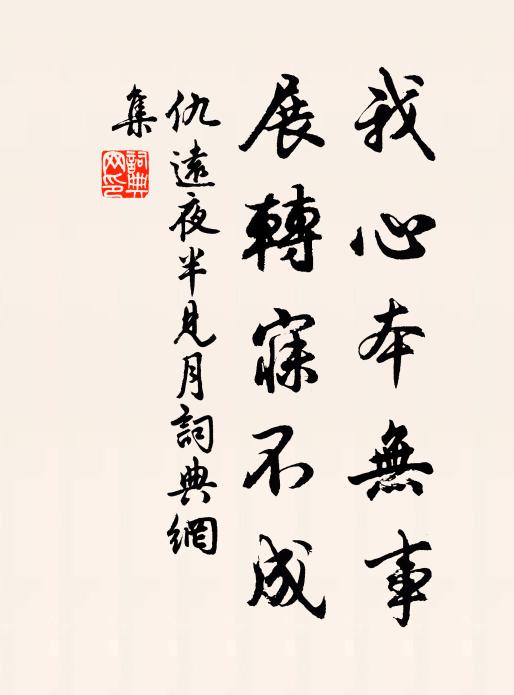 我心本無事
展轉寐不成
仇遠夜半見月詞典網
集
詞典
網印